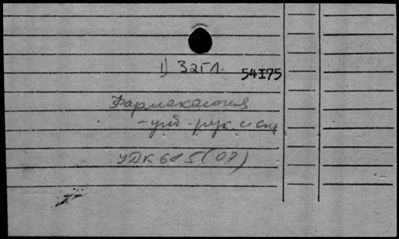 1) Загл.
54175
Фармакология
-учеб. рук. и спр
УДК 615(07)